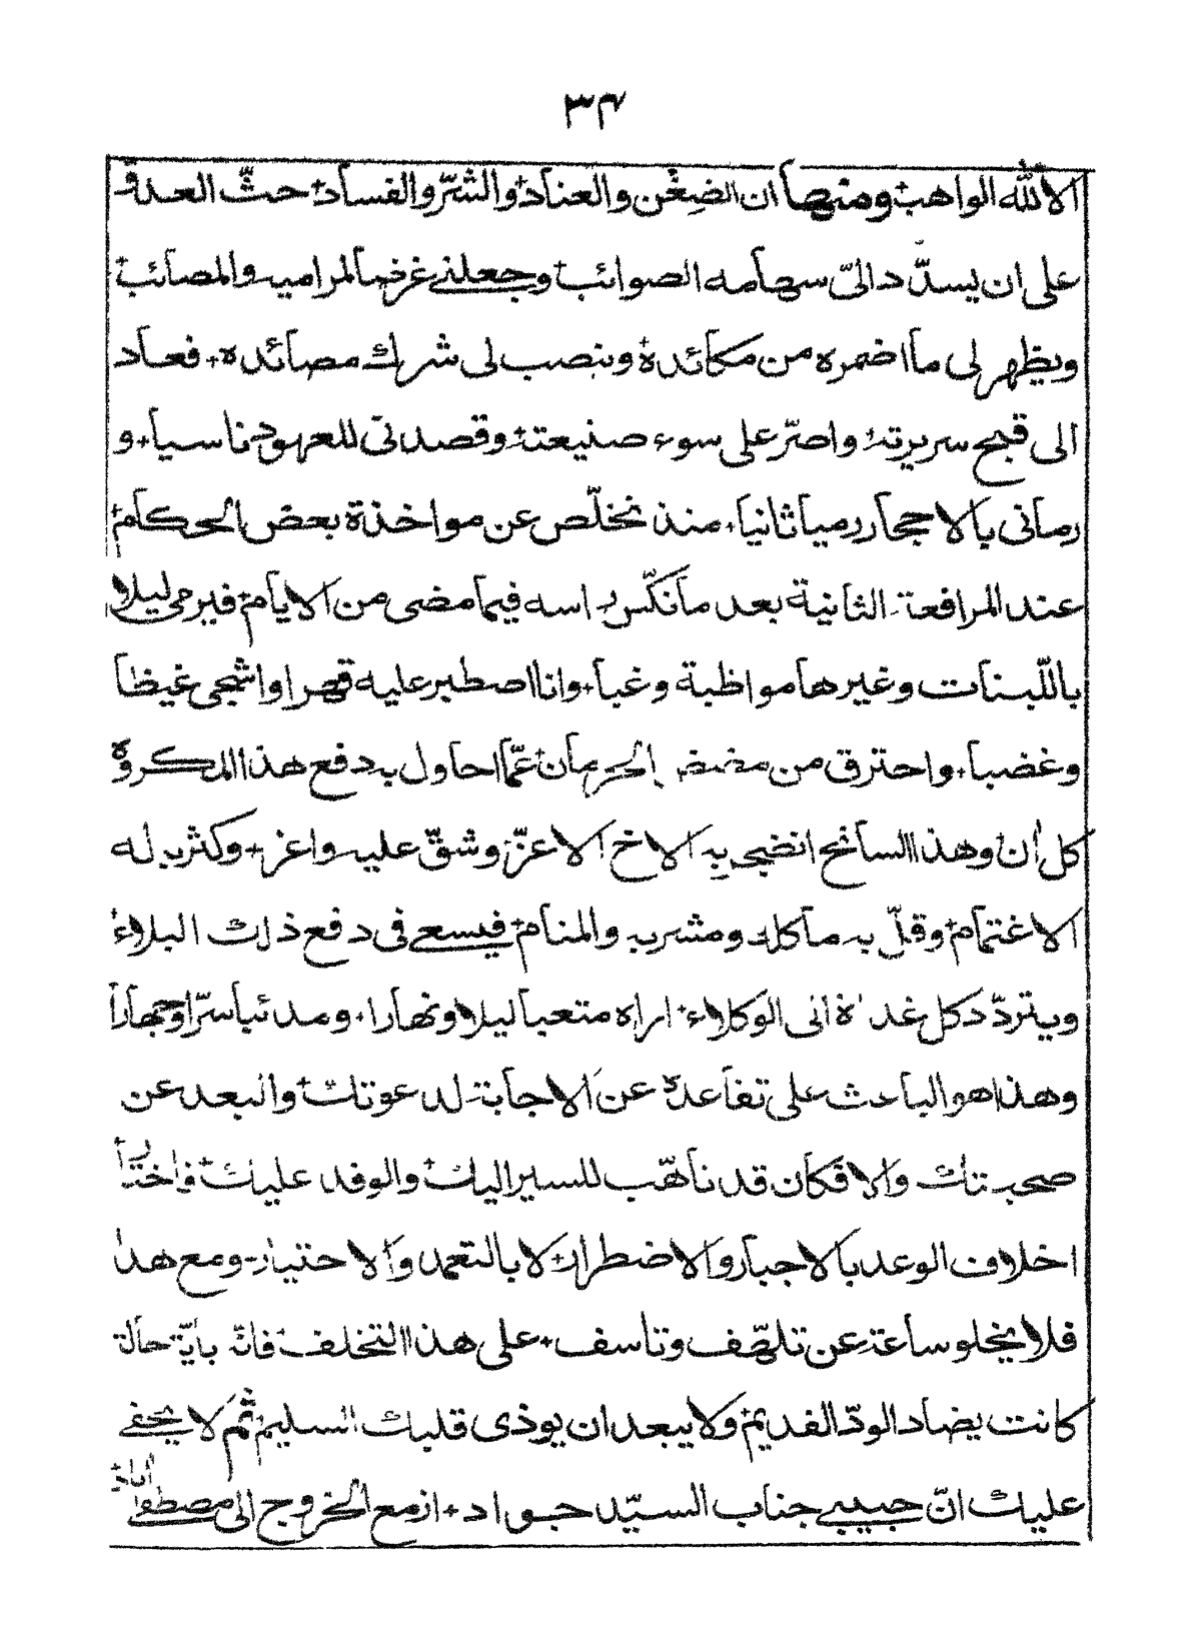 ٣٤
الا لله الواهب ومنها ان الضِغْن والعناد والشرّ والفساد حثّ العدوّ
على ان يسدّد الىّ سهامه الصوائب وجعلنے غرضا لمراميه والمصائب
ويظهر لى ما اضمره من مكائده وينصب لى شرك مصائده فعاد
الى قبيح سريرته واصرّ على سوء صنيعته وقصدنى للعهود ناسيا و
رمانى بالاحجار رميا ثانيا منذ تخلّص عن مواخذة بعض الحكام
عند المرافعة الثانية بعد ما نكّس راسه فيما مضى من الايام فيرمى ليلا
باللّبنات وغيرها مواظبة وغبا وانا اصطبر عليه قهرا واشجى غيظا
وغضبا واحترق من مضض الحرمان عمّا احاول به دفع هذا المكروه
كل أن وهذا السانح انضجى به الاخ الاعزّ وشقّ عليه واعز وكثر به له
الاغتمام وقلّ به ماكله ومشربه والمنام فيسعے فى دفع ذلك البلاء
ويتردّد كل غداة الى الوكلاء اراه متعبا ليلا ونهارا ومدئبا سرّا وجهارا
وهذا هو الباعث على تقاعده عن الاجابة لدعوتك والبعد عن
صحبتك والا فكان قد تاهّب للسير اليك والوفد عليك فاختار
اخلاف الوعد بالاجبار والاضطرار لا بالتعمد والاختيار ومع هذا
فلا يخلو ساعة عن تلهّف وتاسف على هذا التخلف فانّه بايّة حالة
كانت يضاد الودّ القديم ولا يبعد ان يوذى قلبك السليم ثم لا يخفے
عليك انّ حبيبے جناب السيّد جواد ازمع الخروج الى مصطفا اباد